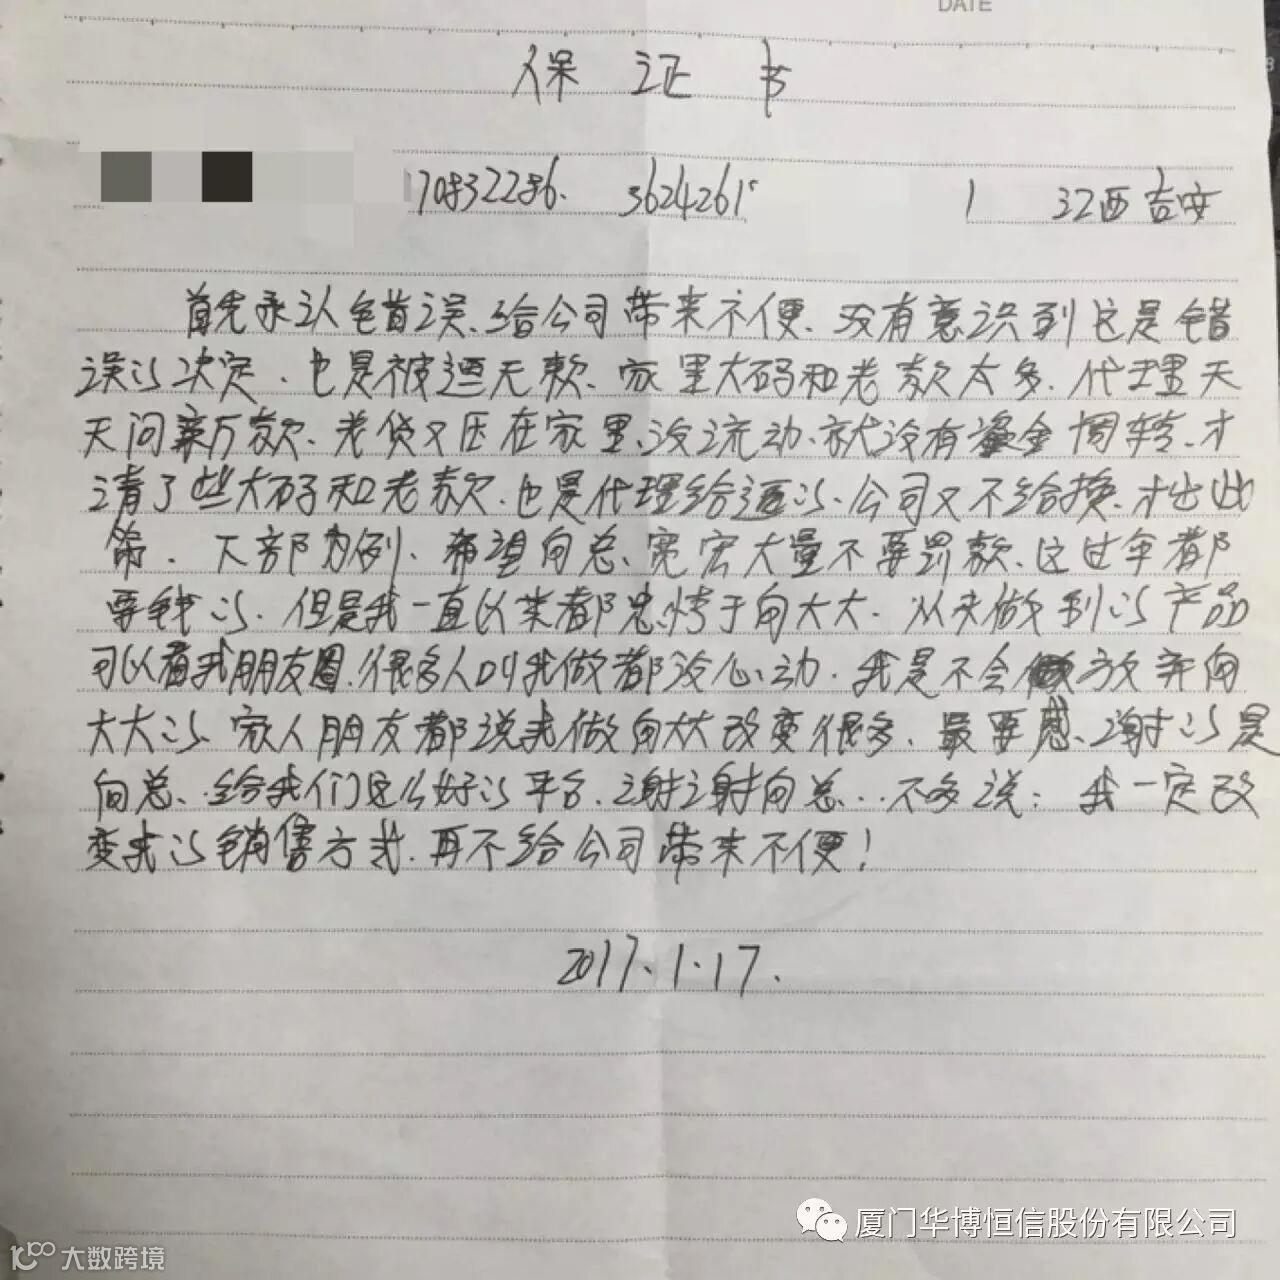 DATE
保 证 书
1708322286. 3624261 1 江西吉安
首先承认错误、给公司带来不便、没有意识到这是错
误的决定、也是被逼无款、家里大码和老款太多、代理天
天问新款、老货又压在家里、没流动、就没有资金周转、才
清了些大码和老款、也是代理给逼的、公司又不给换、才出此
策、下部为例、希望向总、宽宏大量不要罚款、这过年都
要钱的、但是我一直以来都忠情于向大大、从未做别的产品
可以看我朋友圈、很多人叫我做都没心动、我是不会放弃向
大大的、家人朋友都说我做向大大改变很多、最要感谢的是
向总、给我们这么好的平台、谢谢向总...不多说、我一定改
变我的销售方式、再不给公司带来不便！
2017.1.17.
厦门华博恒信股份有限公司
K100 大数跨境